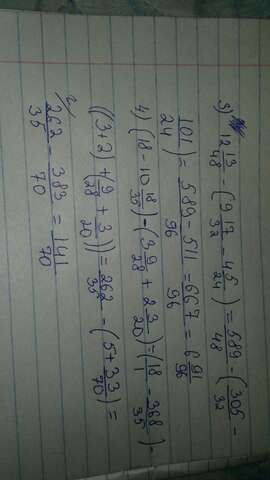 3) 12 13/48 - (9 17/32 - 4 5/24) = 589/48 - (305/32 -
101/24) = 589 - 511/96 = 667/96 = 6 91/96
4) (18 - 10 18/35) - (3 9/28 + 2 3/20) = (18/1 - 368/35) -
((3+2) + (9/28 + 3/20)) = 262/35 - (5 + 33/70) =
262/35 - 383/70 = 141/70